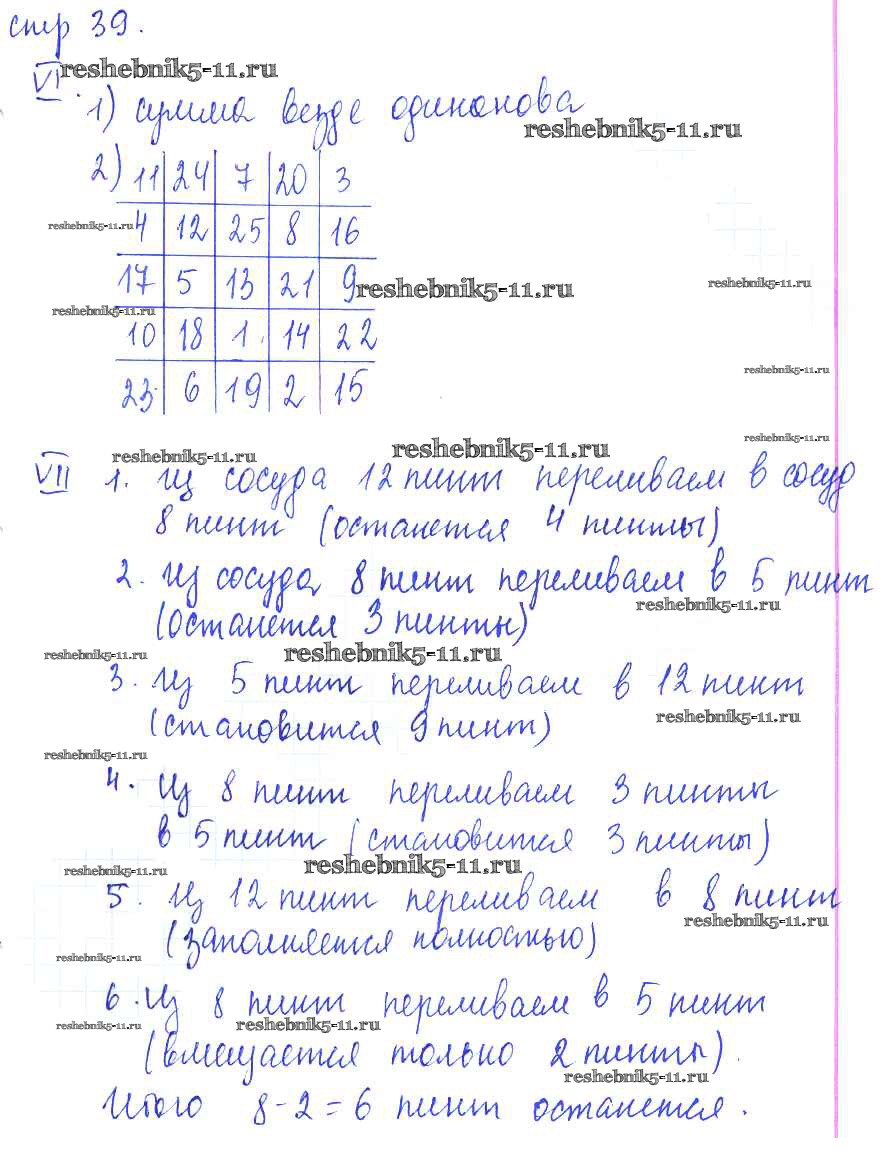 стр 39.
reshebnik5-11.ru
VI
1) сумма везде одинакова
reshebnik5-11.ru
2) 11 24 7 20 3
reshebnik5-11.ru 4 12 25 8 16
17 5 13 21 9 reshebnik5-11.ru reshebnik5-11.ru
reshebnik5-11.ru
10 18 1 14 22
reshebnik5-11.ru
23 6 19 2 15
reshebnik5-11.ru
reshebnik5-11.ru reshebnik5-11.ru
VII 1. Из сосуда 12 пинт переливаем в сосуд
8 пинт (останется 4 пинты)
2. Из сосуда 8 пинт переливаем в 5 пинт
reshebnik5-11.ru
(останется 3 пинты)
reshebnik5-11.ru reshebnik5-11.ru
3. Из 5 пинт переливаем в 12 пинт
reshebnik5-11.ru
(становится 9 пинт)
reshebnik5-11.ru
4. Из 8 пинт переливаем 3 пинты
в 5 пинт (становится 3 пинты)
reshebnik5-11.ru reshebnik5-11.ru
5. Из 12 пинт переливаем в 8 пинт
reshebnik5-11.ru
(заполняется полностью)
reshebnik5-11.ru
6. Из 8 пинт переливаем в 5 пинт
reshebnik5-11.ru reshebnik5-11.ru
(вмещается только 2 пинты).
reshebnik5-11.ru
Итого 8-2=6 пинт останется.